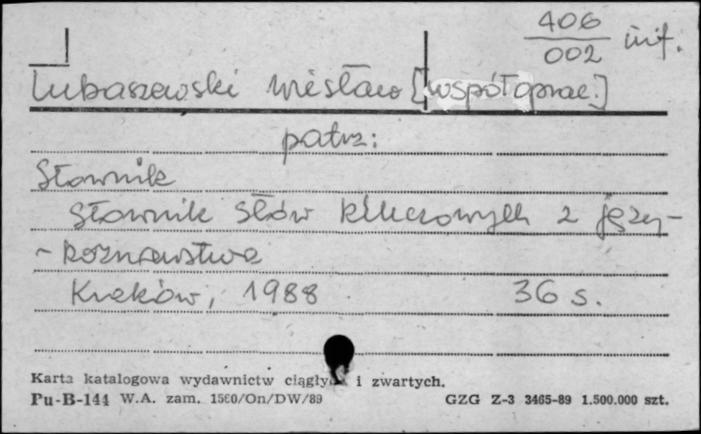 406
002 inf.
Lubaszewski Wiesław [współoprac.]
patrz:
Słownik
Słownik słów kluczowych z języ-
- koznawstwa
Kraków, 1988 36 s.
Karta katalogowa wydawnictw ciągłych i zwartych.
Pu-B-144 W.A. zam. 1560/On/DW/89 GZG Z-3 3465-89 1.500.000 szt.